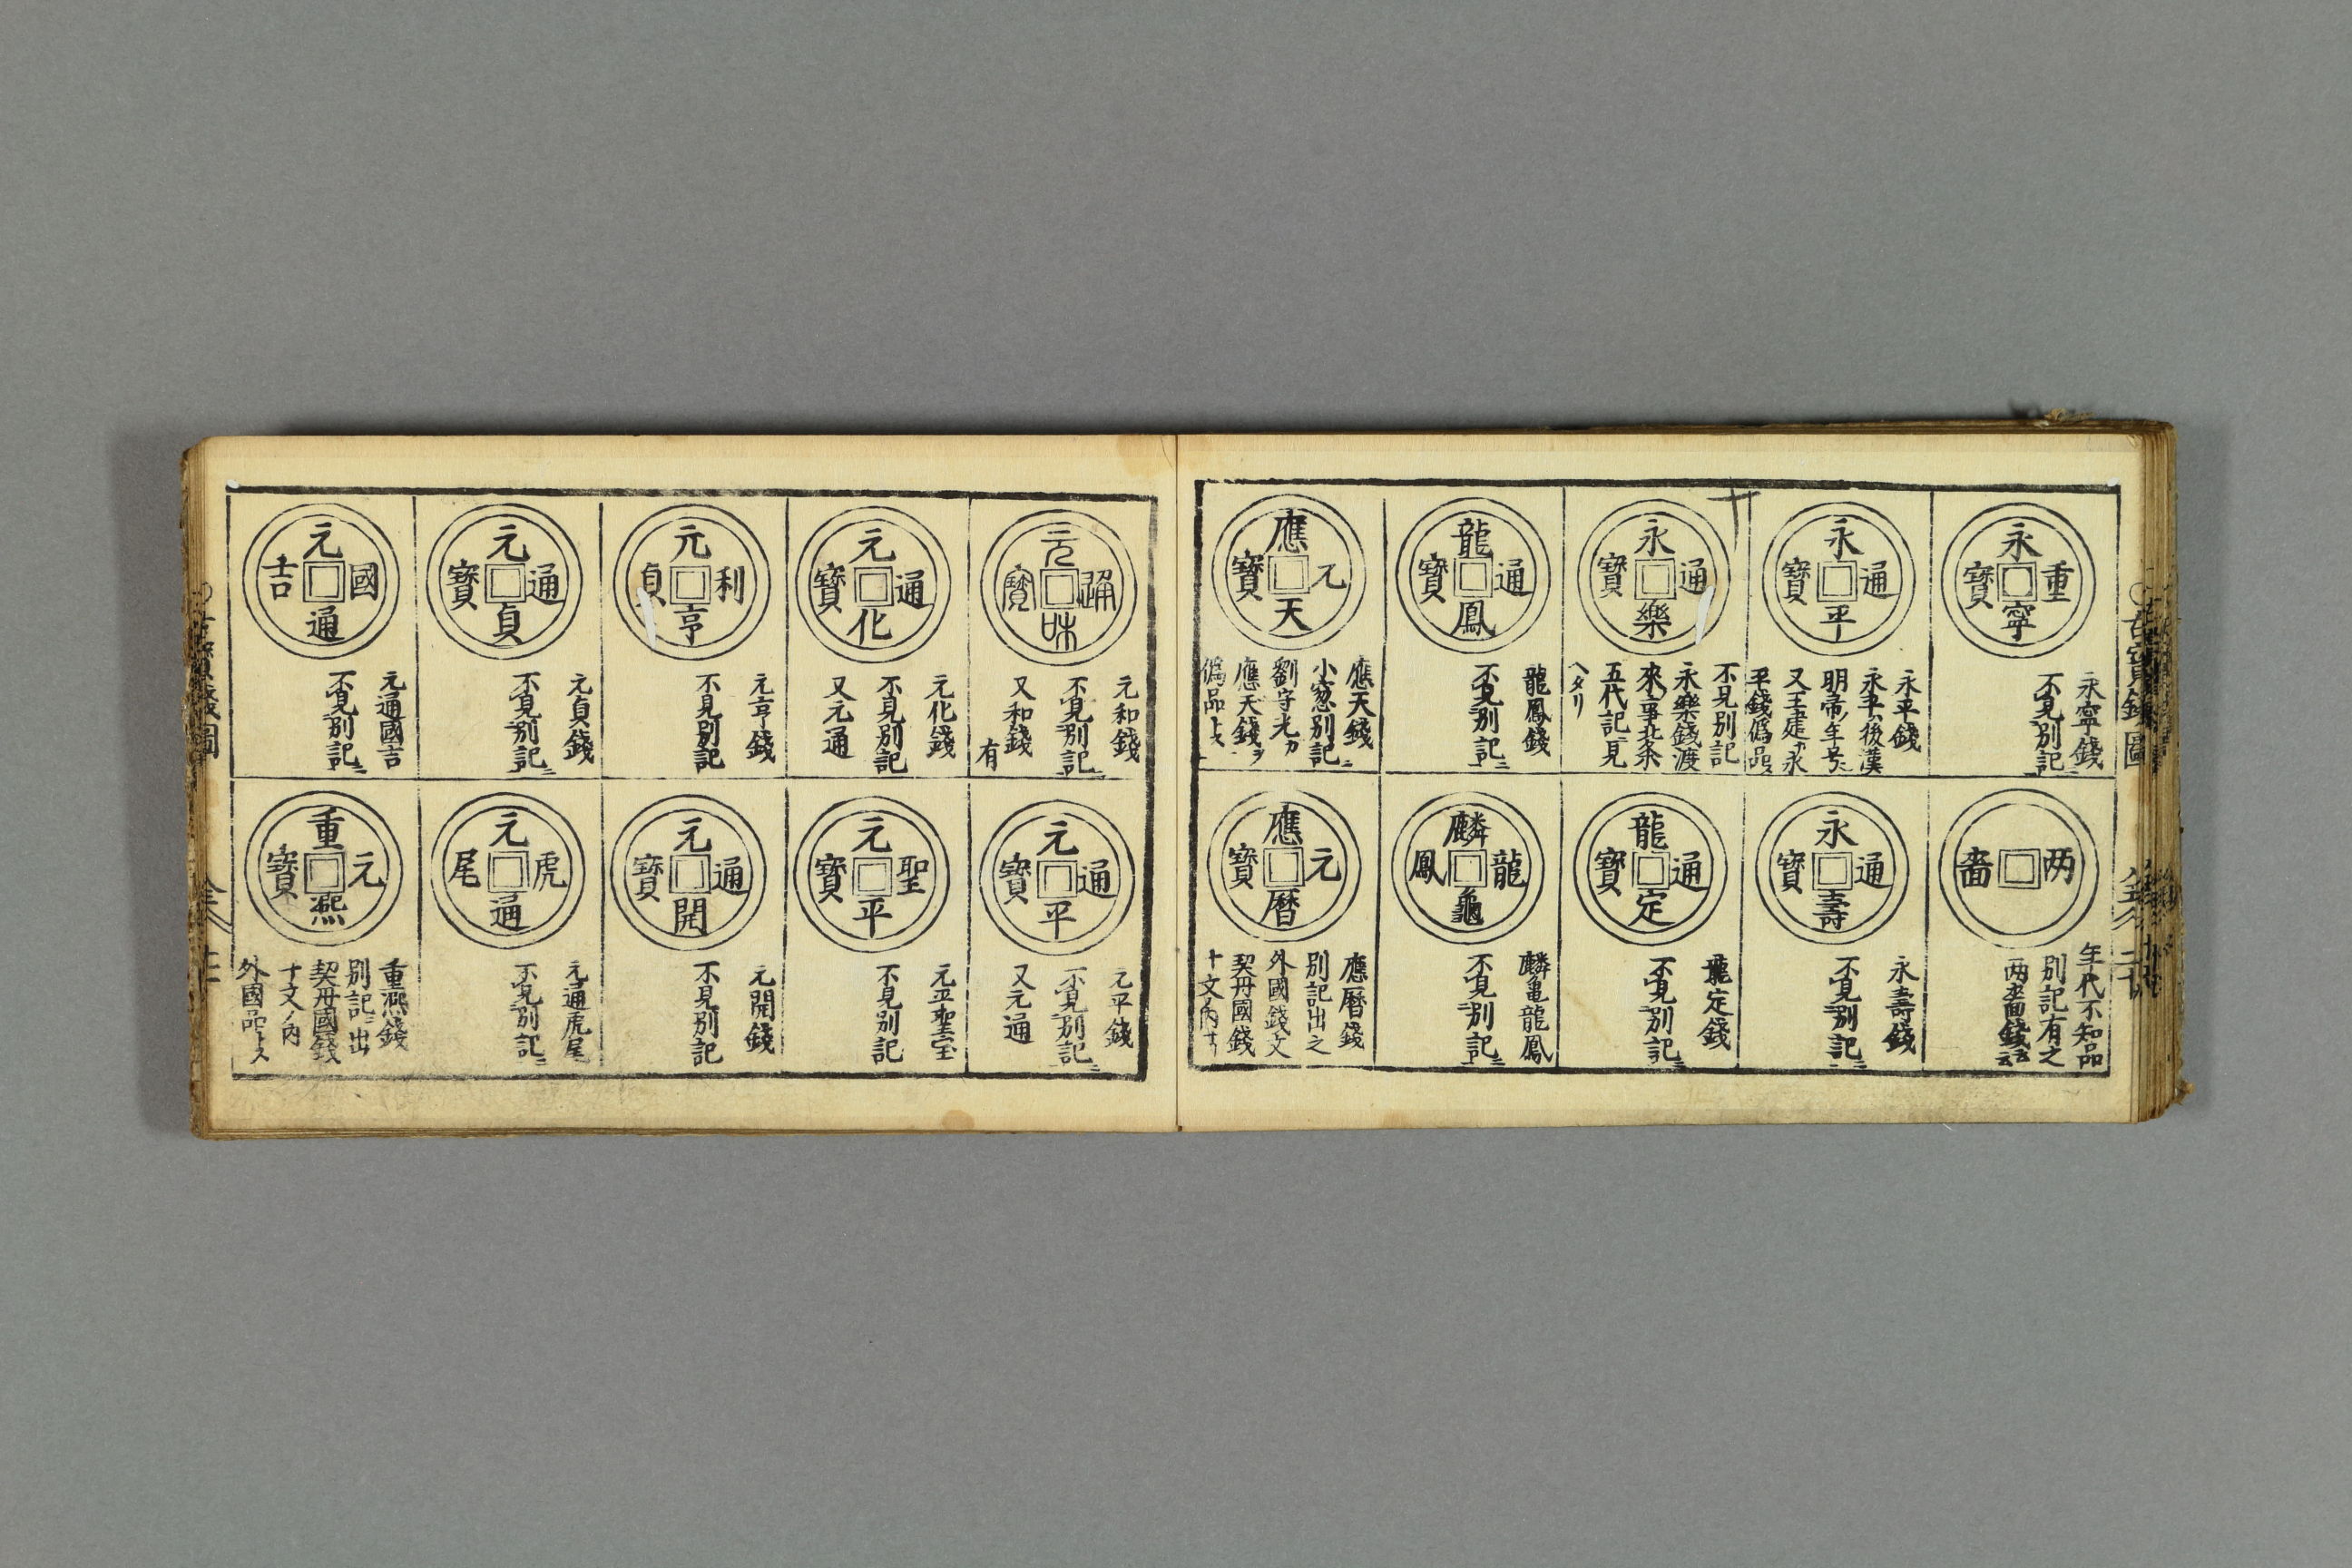 永寧重寶
永寧錢
不見別記ニ
永平通寶
永平錢
永平ハ後漢
明帝ノ年号ニ
又王建カ永
平錢偽品
永樂通寶
不見別記
永樂錢渡
來ノ事北条
五代記ニ見
ヘタリ
龍鳳通寶
龍鳳錢
不見別記ニ
應天元寶
應天錢
小窓別記ニ
劉守光カ
應天錢ヲ
偽品トス
两
年代不知品
別記有之
永壽通寶
永壽錢
不見別記ニ
龍定通寶
龍定錢
不見別記ニ
麟龜龍鳳
麟亀龍鳳
不見別記ニ
應曆元寶
應曆錢
別記出之
外國錢文
契丹國錢
十文ノ内ナリ
元和通寶
元和錢
不見別記ニ
又和錢
有
元化通寶
元化錢
不見別記
又元通
元亨利貞
元亨錢
不見別記
元貞通寶
元貞錢
不見別記ニ
元通國吉
元通國吉
不見別記ニ
元平通寶
元平錢
不見別記ニ
又元通
元平聖寶
元平聖宝
不見別記
元開通寶
元開錢
不見別記
元通虎尾
元通虎尾
不見別記ニ
重熈元寶
重熈錢
別記ニ出
契丹國錢
十文ノ内
外國品トス